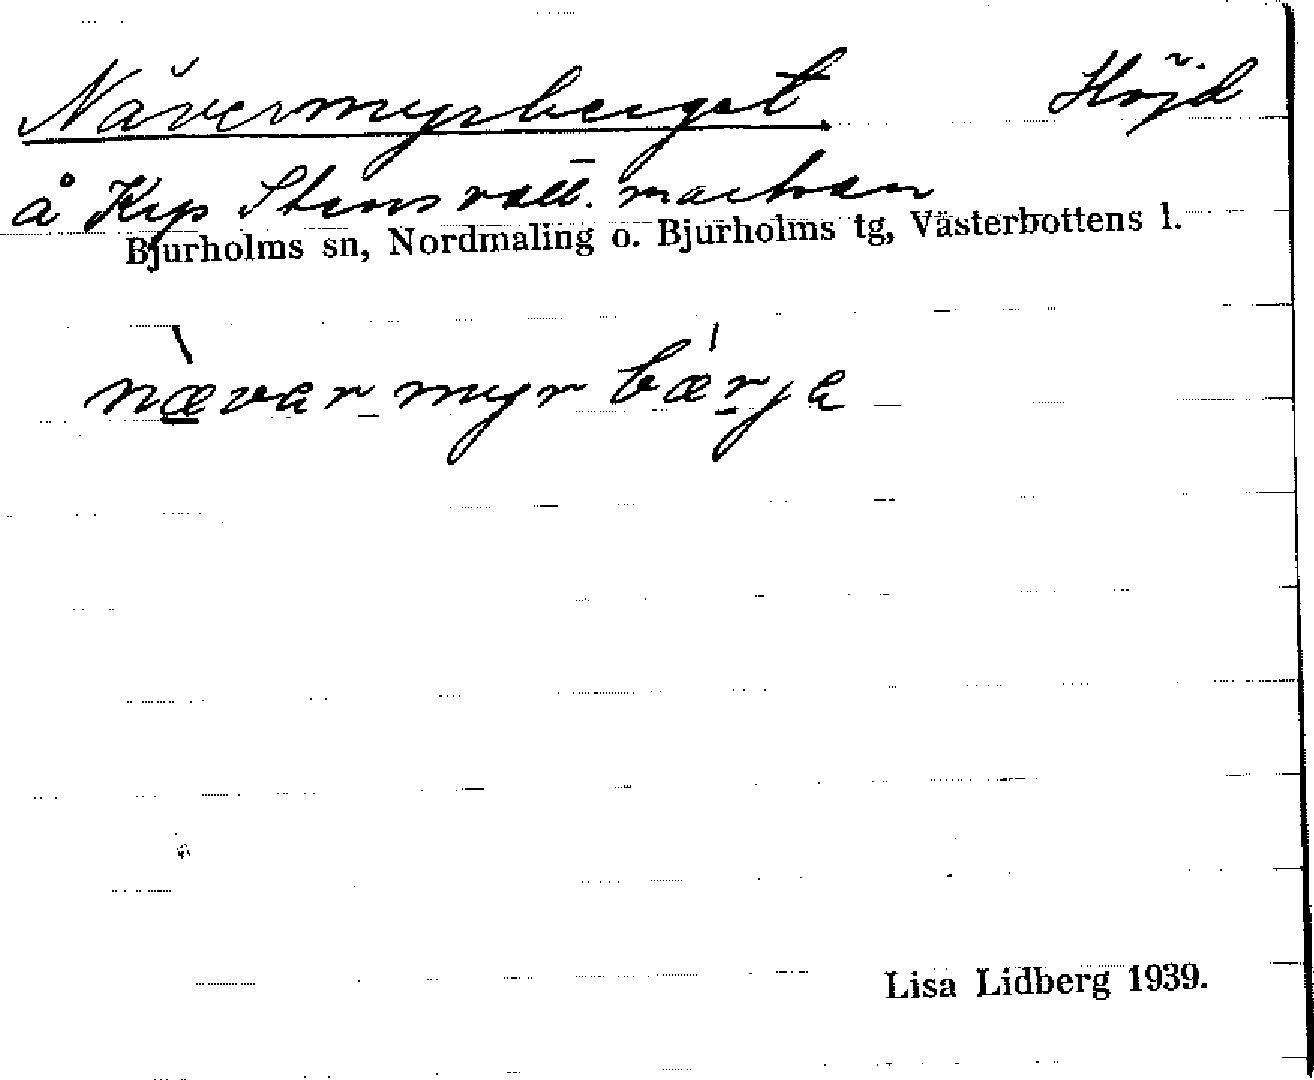 Nävermyrberget Höjd
å Krp Stensvall. marken
Bjurholms sn, Nordmaling o. Bjurholms tg, Västerbottens l.
nævar myr bærja
Lisa Lidberg 1939.